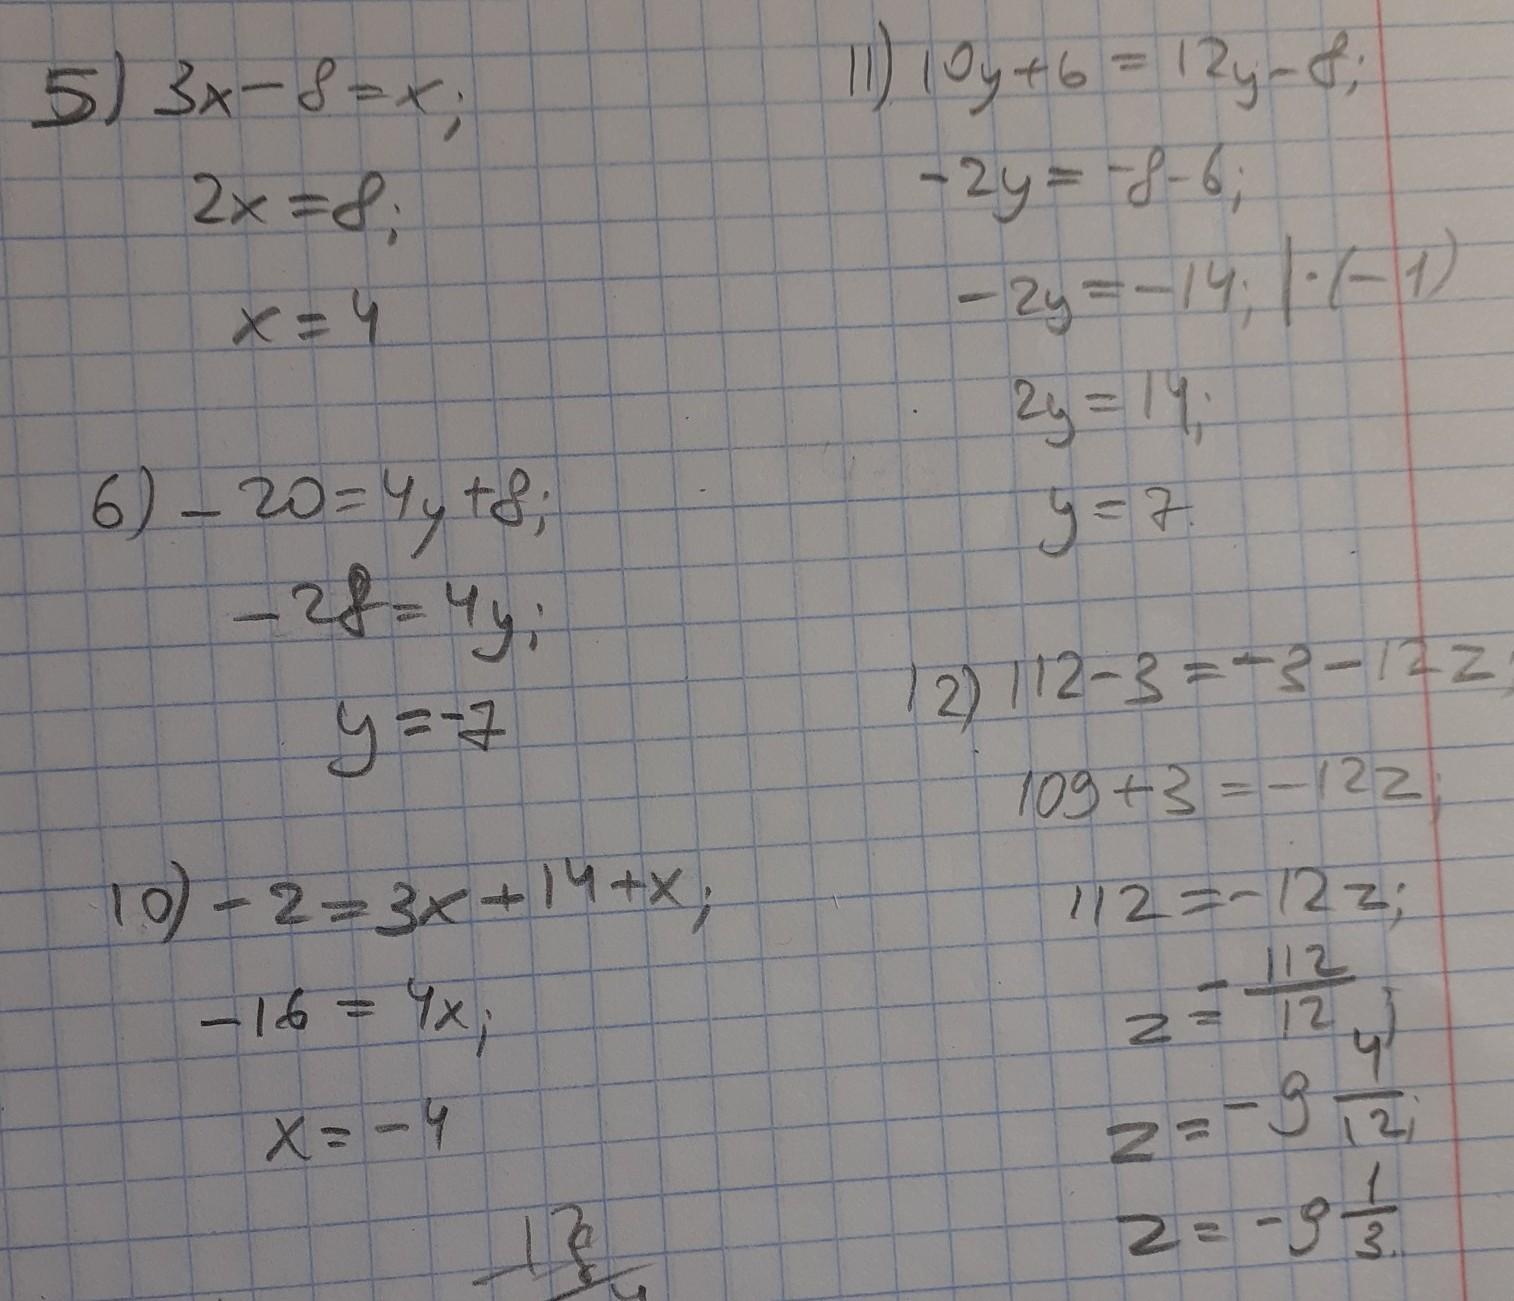 5) 3x - 8 = x;
2x = 8;
x = 4
6) - 20 = 4y + 8;
- 28 = 4y;
y = -7
10) - 2 = 3x + 14 + x;
-16 = 4x;
x = -4
11) 10y + 6 = 12y - 8;
-2y = -8 - 6;
-2y = -14; | · (-1)
2y = 14;
y = 7.
12) 112 - 3 = -3 - 12z;
109 + 3 = -12z;
112 = -12z;
z = - 112/12;
z = -9 4/12;
z = -9 1/3.